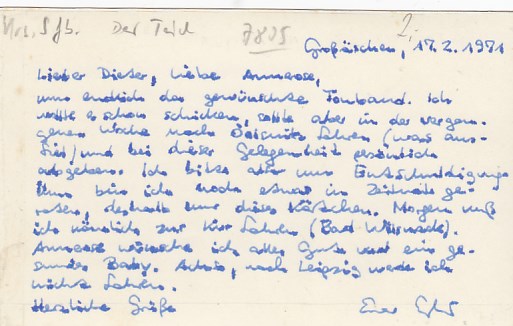 Der Teich 7825 2.
Großräschen, 17.2.1971
Lieber Dieter, liebe Annerose,
nun endlich das gewünschte Tonband. Ich
wollte es schon schicken, wollte aber in der vergan-
genen Woche nach fahren (was aus-
fiel) und bei dieser Gelegenheit persönlich
abgeben. Ich bitte also um Entschuldigung.
Nun bin ich noch etwas in Zeitnot ge-
raten, deshalb nur dieses Kärtchen. Morgen muß
ich nämlich zur Kur fahren (Bad Wilsnack).
Annerose wünsche ich alles Gute und ein ge-
sundes Baby. Achso, nach Leipzig werde ich
nicht fahren.
Herzliche Grüße Euer